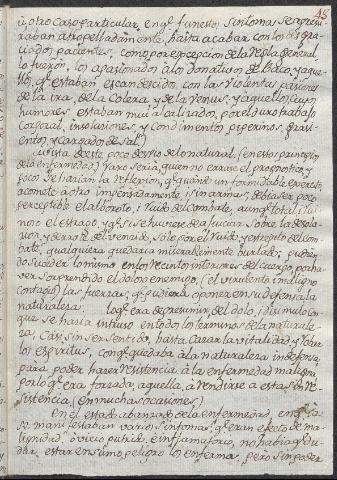 48
ù otro caso particular, en q.e funestos sintomas se apresu-
raban atropelladamente, hasta acabar con los desgra-
ciados pacientes, como por excepcion de la regla general
lo fueròn, los apasionados à los donativos de Baco, y aque-
llos, q.e estaban escandecidos con las violentas pasiones
de la ira, de la Colera, y de la Venus, y aquellos cuyos
humores estaban mui alcalizados, por el duro trabajo
Corporal, insolaciones, y Condimentos piperinos,
y cargados de sal.
A vista de este poco desvio de lo natural, (en estos principios
de la enfermedad) raro seria, quien no errase el pronostico, y
pocos harian la reflexion, q.e quando un formidable exercito,
acomete à otro impensadamente, sin armas, debia ser poco
perceptible el alboroto, i ruido del combate, aunq.e total i
no el estrago, y q.e si se huviese de la desola-
cion, y derrota del venado, solo por el ruido, y estrepito del Com-
bate, qualquiera quedaria miserablemente burlado; pudien-
do suceder lo mismo en los recintos interiores del cuerpo, por ha-
ver sorprendido el doloso enemigo, (el virulento maligno
contagio) las fuerzas, q.e pudiera oponer en su defensa la
naturaleza: lo q.e era de presumir, del dolo, i disimulo con
que se havia intruso en todos los terminos de la naturale-
za, casi sin ser sentido, hasta cazar la vitalidad, y robar
los espiritus, con q.e quedaba à la naturaleza indefensa
para poder hacer resistencia à la enfermedad maligna,
por lo q.e era forzada, aquella, à rendirse a esta sin re-
sistencia. (en muchas ocasiones)
En el estado abanzado de la enfermedad, en q.e ya
se manifestaban varios sintomas, q.e eran efecto de ma-
lignidad, ò vicio putrido, e inflamatorio, no habia q.e du-
dar, estar en sumo peligro los enfermos, pero sin poder